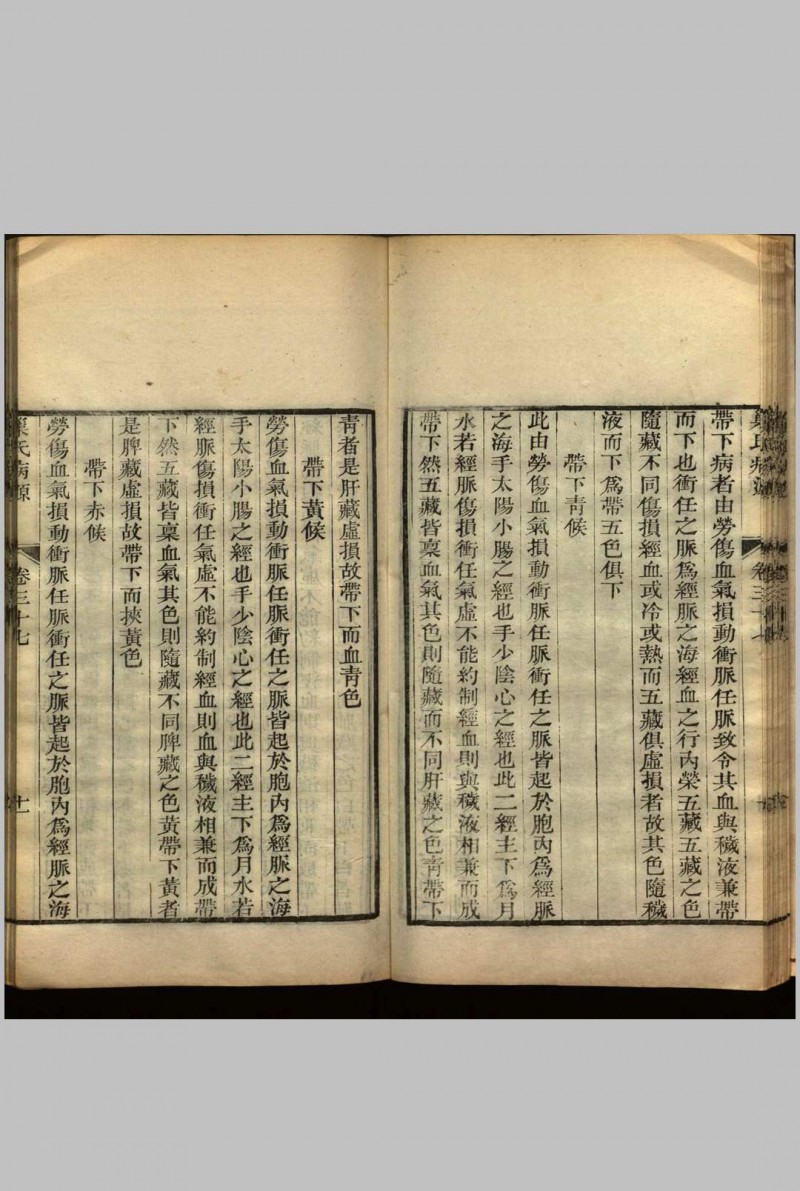 巢氏病源 卷三十七
帶下病者由勞傷血氣損動衝脈任脈致令其血與穢液兼帶
而下也衝任之脈爲經脈之海經血之行內榮五藏五藏之色
隨藏不同傷損經血或冷或熱而五藏俱虛損者故其色隨穢
液而下爲帶五色俱下
帶下青候
此由勞傷血氣損動衝脈任脈衝任之脈皆起於胞內爲經脈
之海手太陽小腸之經也手少陰心之經也此二經主下爲月
水若經脈傷損衝任氣虛不能約制經血則與穢液相兼而成
帶下然五藏皆稟血氣其色則隨藏而不同肝藏之色青帶下
青者是肝藏虛損故帶下而血青色
帶下黃候
勞傷血氣損動衝脈任脈衝任之脈皆起於胞內爲經脈之海
手太陽小腸之經也手少陰心之經也此二經主下爲月水若
經脈傷損衝任氣虛不能約制經血則血與穢液相兼而成帶
下然五藏皆稟血氣其色則隨藏不同脾藏之色黃帶下黃者
是脾藏虛損故帶下而挾黃色
帶下赤候
勞傷血氣損動衝脈任脈衝任之脈皆起於胞內爲經脈之海
巢氏病源 卷三十七 十一